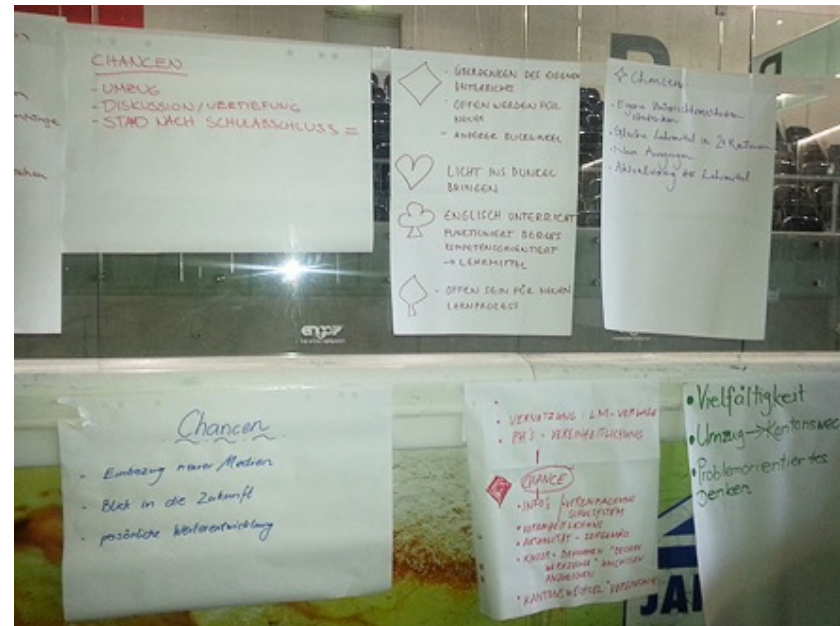 CHANCEN
- UMZUG
- DISKUSSION/VERTIEFUNG
- STAND NACH SCHULABSCHLUSS =
- ÜBERDENKEN DES EIGENEN
UNTERRICHTS
- OFFEN WERDEN FÜR
NEUES
- ANDERER BLICKWINKEL
LICHT INS DUNKEL
BRINGEN
ENGLISCH UNTERRICHT
FUNKTIONIERT BEREITS
KOMPETENZORIENTIERT
→ LEHRMITTEL
- OFFEN SEIN FÜR NEUEN
LERNPROZESS
Chancen
- Eigene Unterrichtsmethoden
überdenken
- Gleiche Lehrmittel in 21 Kantonen
- Neue Anregungen
- Aktualisierung der Lehrmittel
engo
Chancen
- Einbezug neuer Medien
- Blick in die Zukunft
- persönliche Weiterentwicklung
• VERNETZUNG - LM-VERLAGE
• PH'S - VEREINHEITLICHUNG
CHANCE
• INFO'S / VEREINFACHUNG
SCHULSYSTEM
• AKTUALITÄT - ZEITGEMÄSS
• KINDER BEKOMMEN
WERKZEUGE
• KANTONSWECHSEL
• Vielfältigkeit
• Umzug → Kantonswec
• Problemorientiertes
Denken
JA